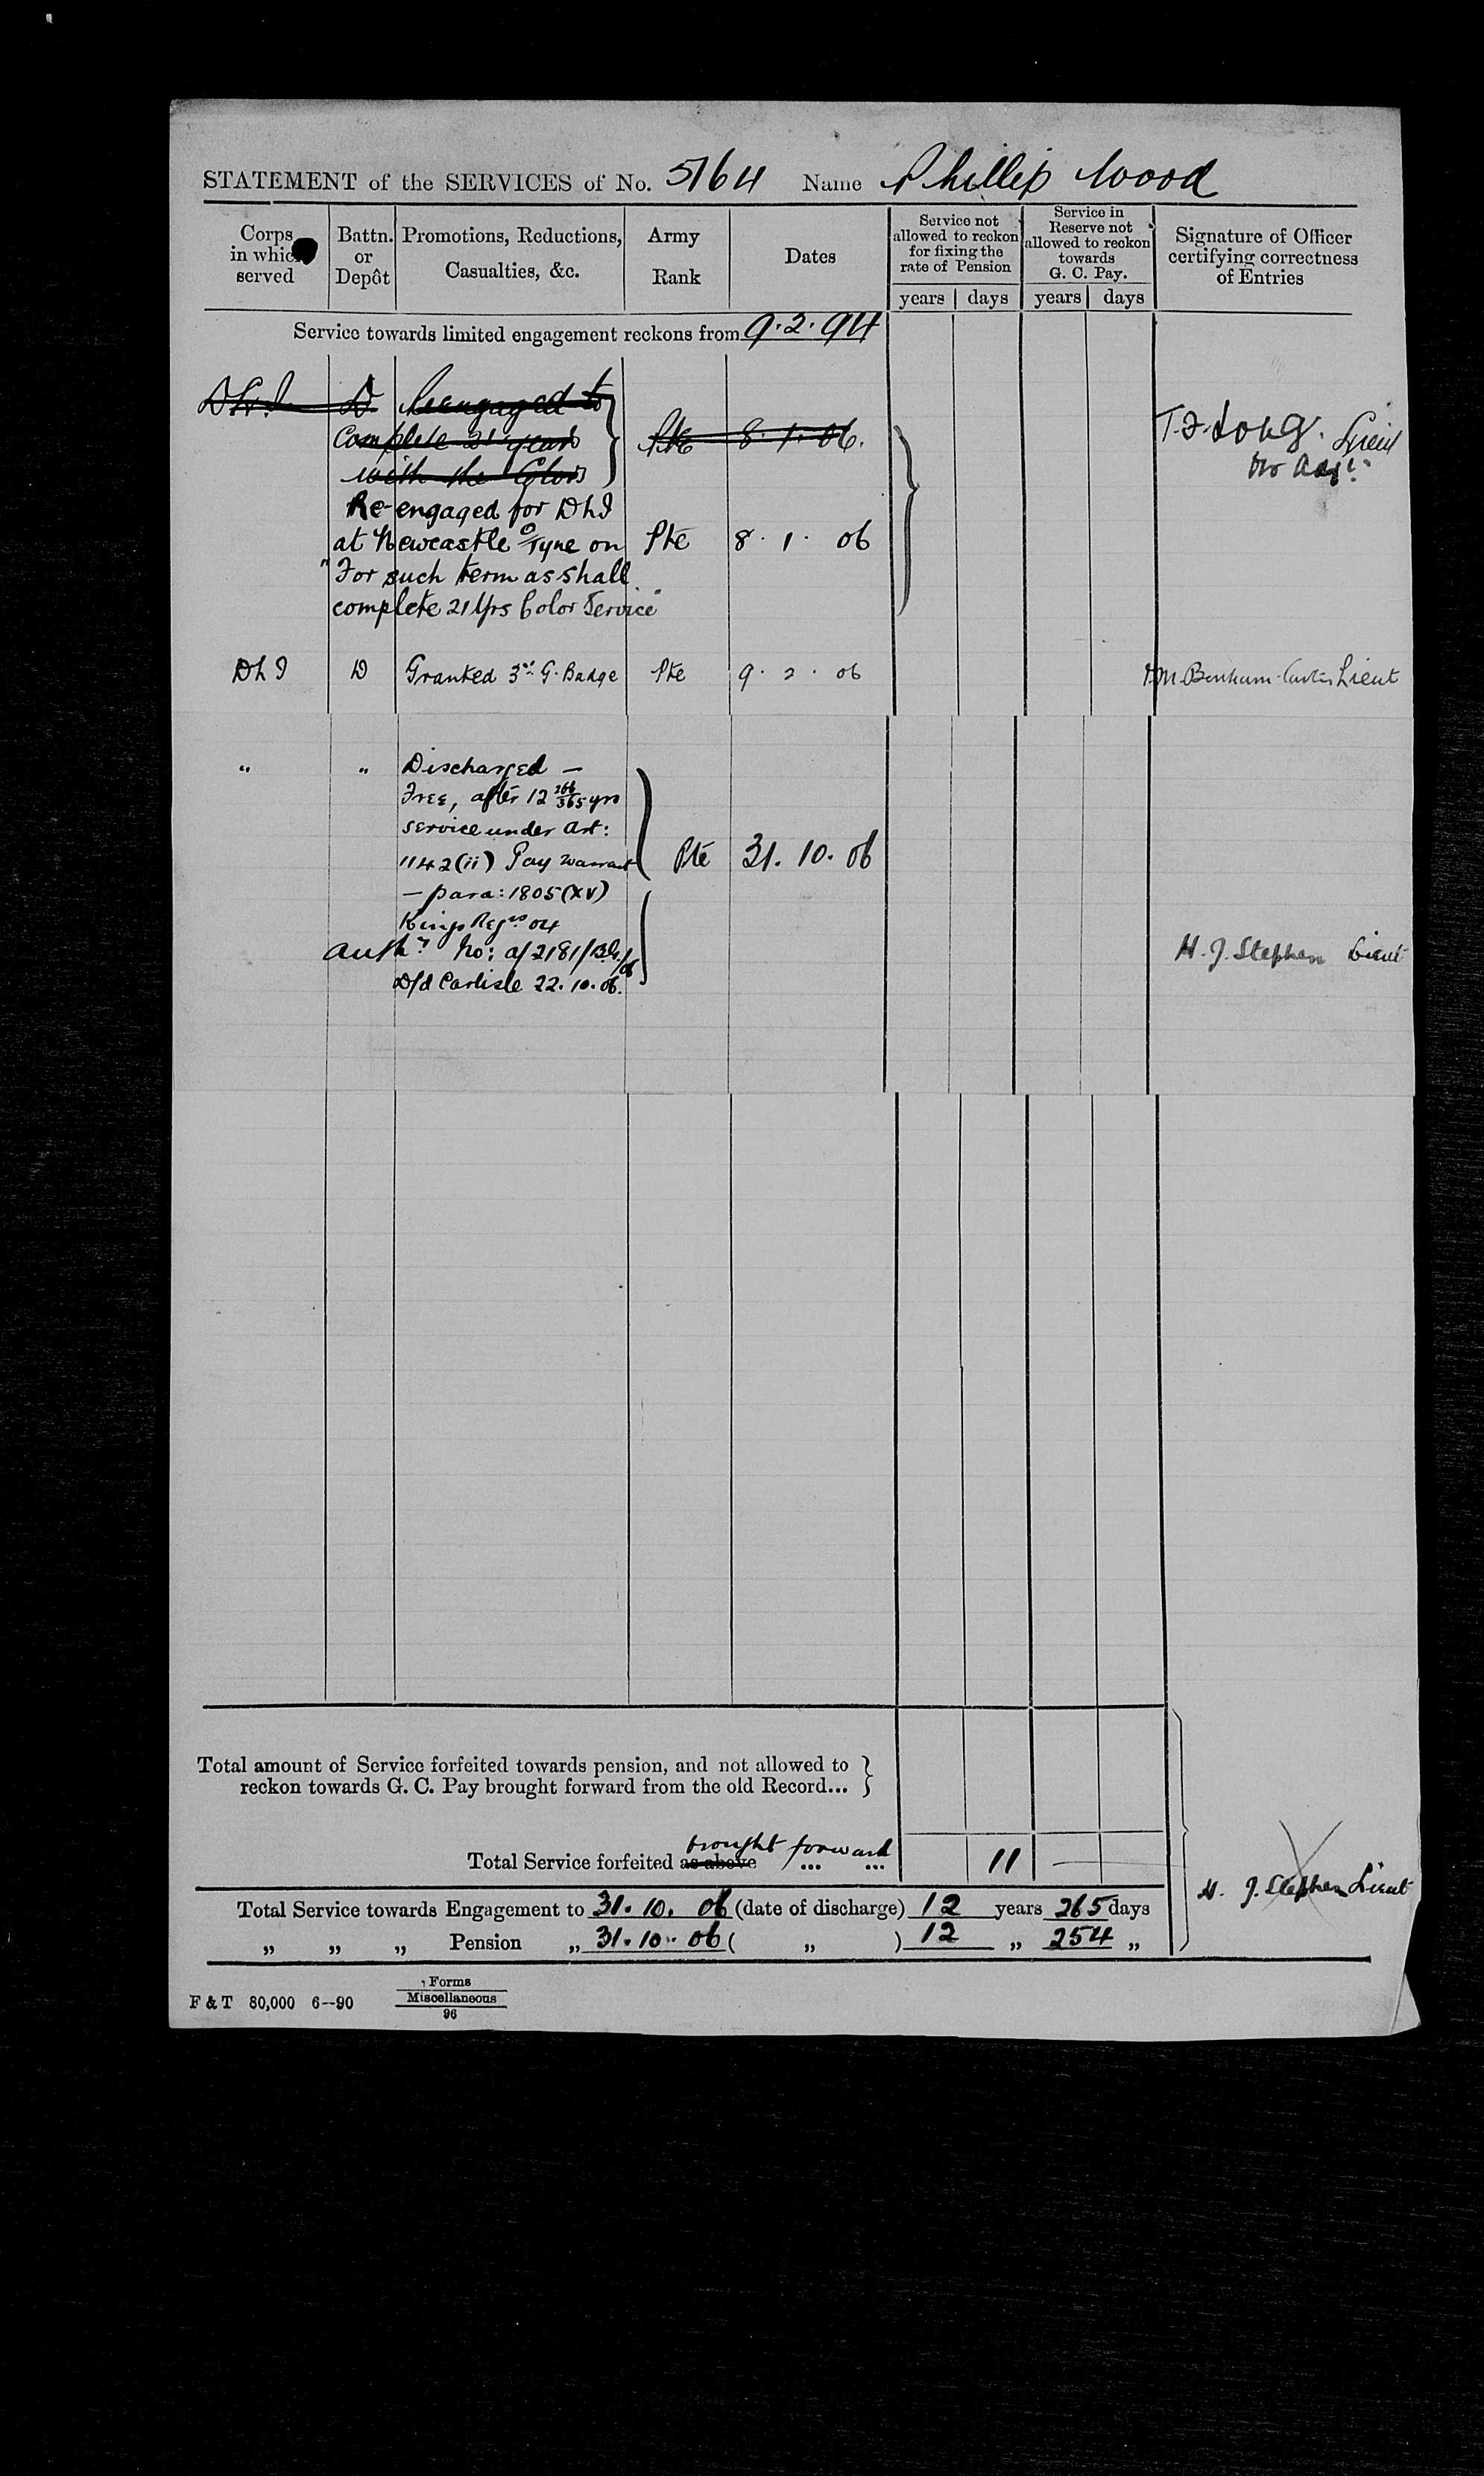 STATEMENT of the SERVICES of No. 5164 Name Phillip Wood
Corps in which served
Battn. or Depôt
Promotions, Reductions, Casualties, &c.
Army Rank
Dates
Service not allowed to reckon for fixing the rate of Pension
years days
Service in Reserve not allowed to reckon towards G. C. Pay.
years days
Signature of Officer certifying correctness of Entries
Service towards limited engagement reckons from 9.2.94
DLI D Reengaged to
complete 21 years Pte 8.1.06.
with the Colors
T.F. Long. Lieut
for Adjt.
Re-engaged for DLI
at Newcastle o/Tyne on Pte 8.1.06
"For such term as shall
complete 21 Yrs Color Service"
DLI D Granted 3rd G. Badge Pte 9.2.06 Lieut
" " Discharged —
Free, after 12 266/365 yrs
service under Art:
1142(ii) Pay Warrant Pte 31.10.06
— para: 1805 (XV)
Kings Regns 04
Authy No: a/2181/B.G./06 H. J. Stephen Lieut
D/d Carlisle 22.10.06.
Total amount of Service forfeited towards pension, and not allowed to
reckon towards G. C. Pay brought forward from the old Record...
brought forward
Total Service forfeited as above ... ... 11 —
H. J. Stephen Lieut
Total Service towards Engagement to 31.10.06 (date of discharge) 12 years 265 days
„ „ „ Pension „ 31.10.06 ( „ ) 12 „ 254 „
F & T 80,000 6--90
Forms
Miscellaneous
96